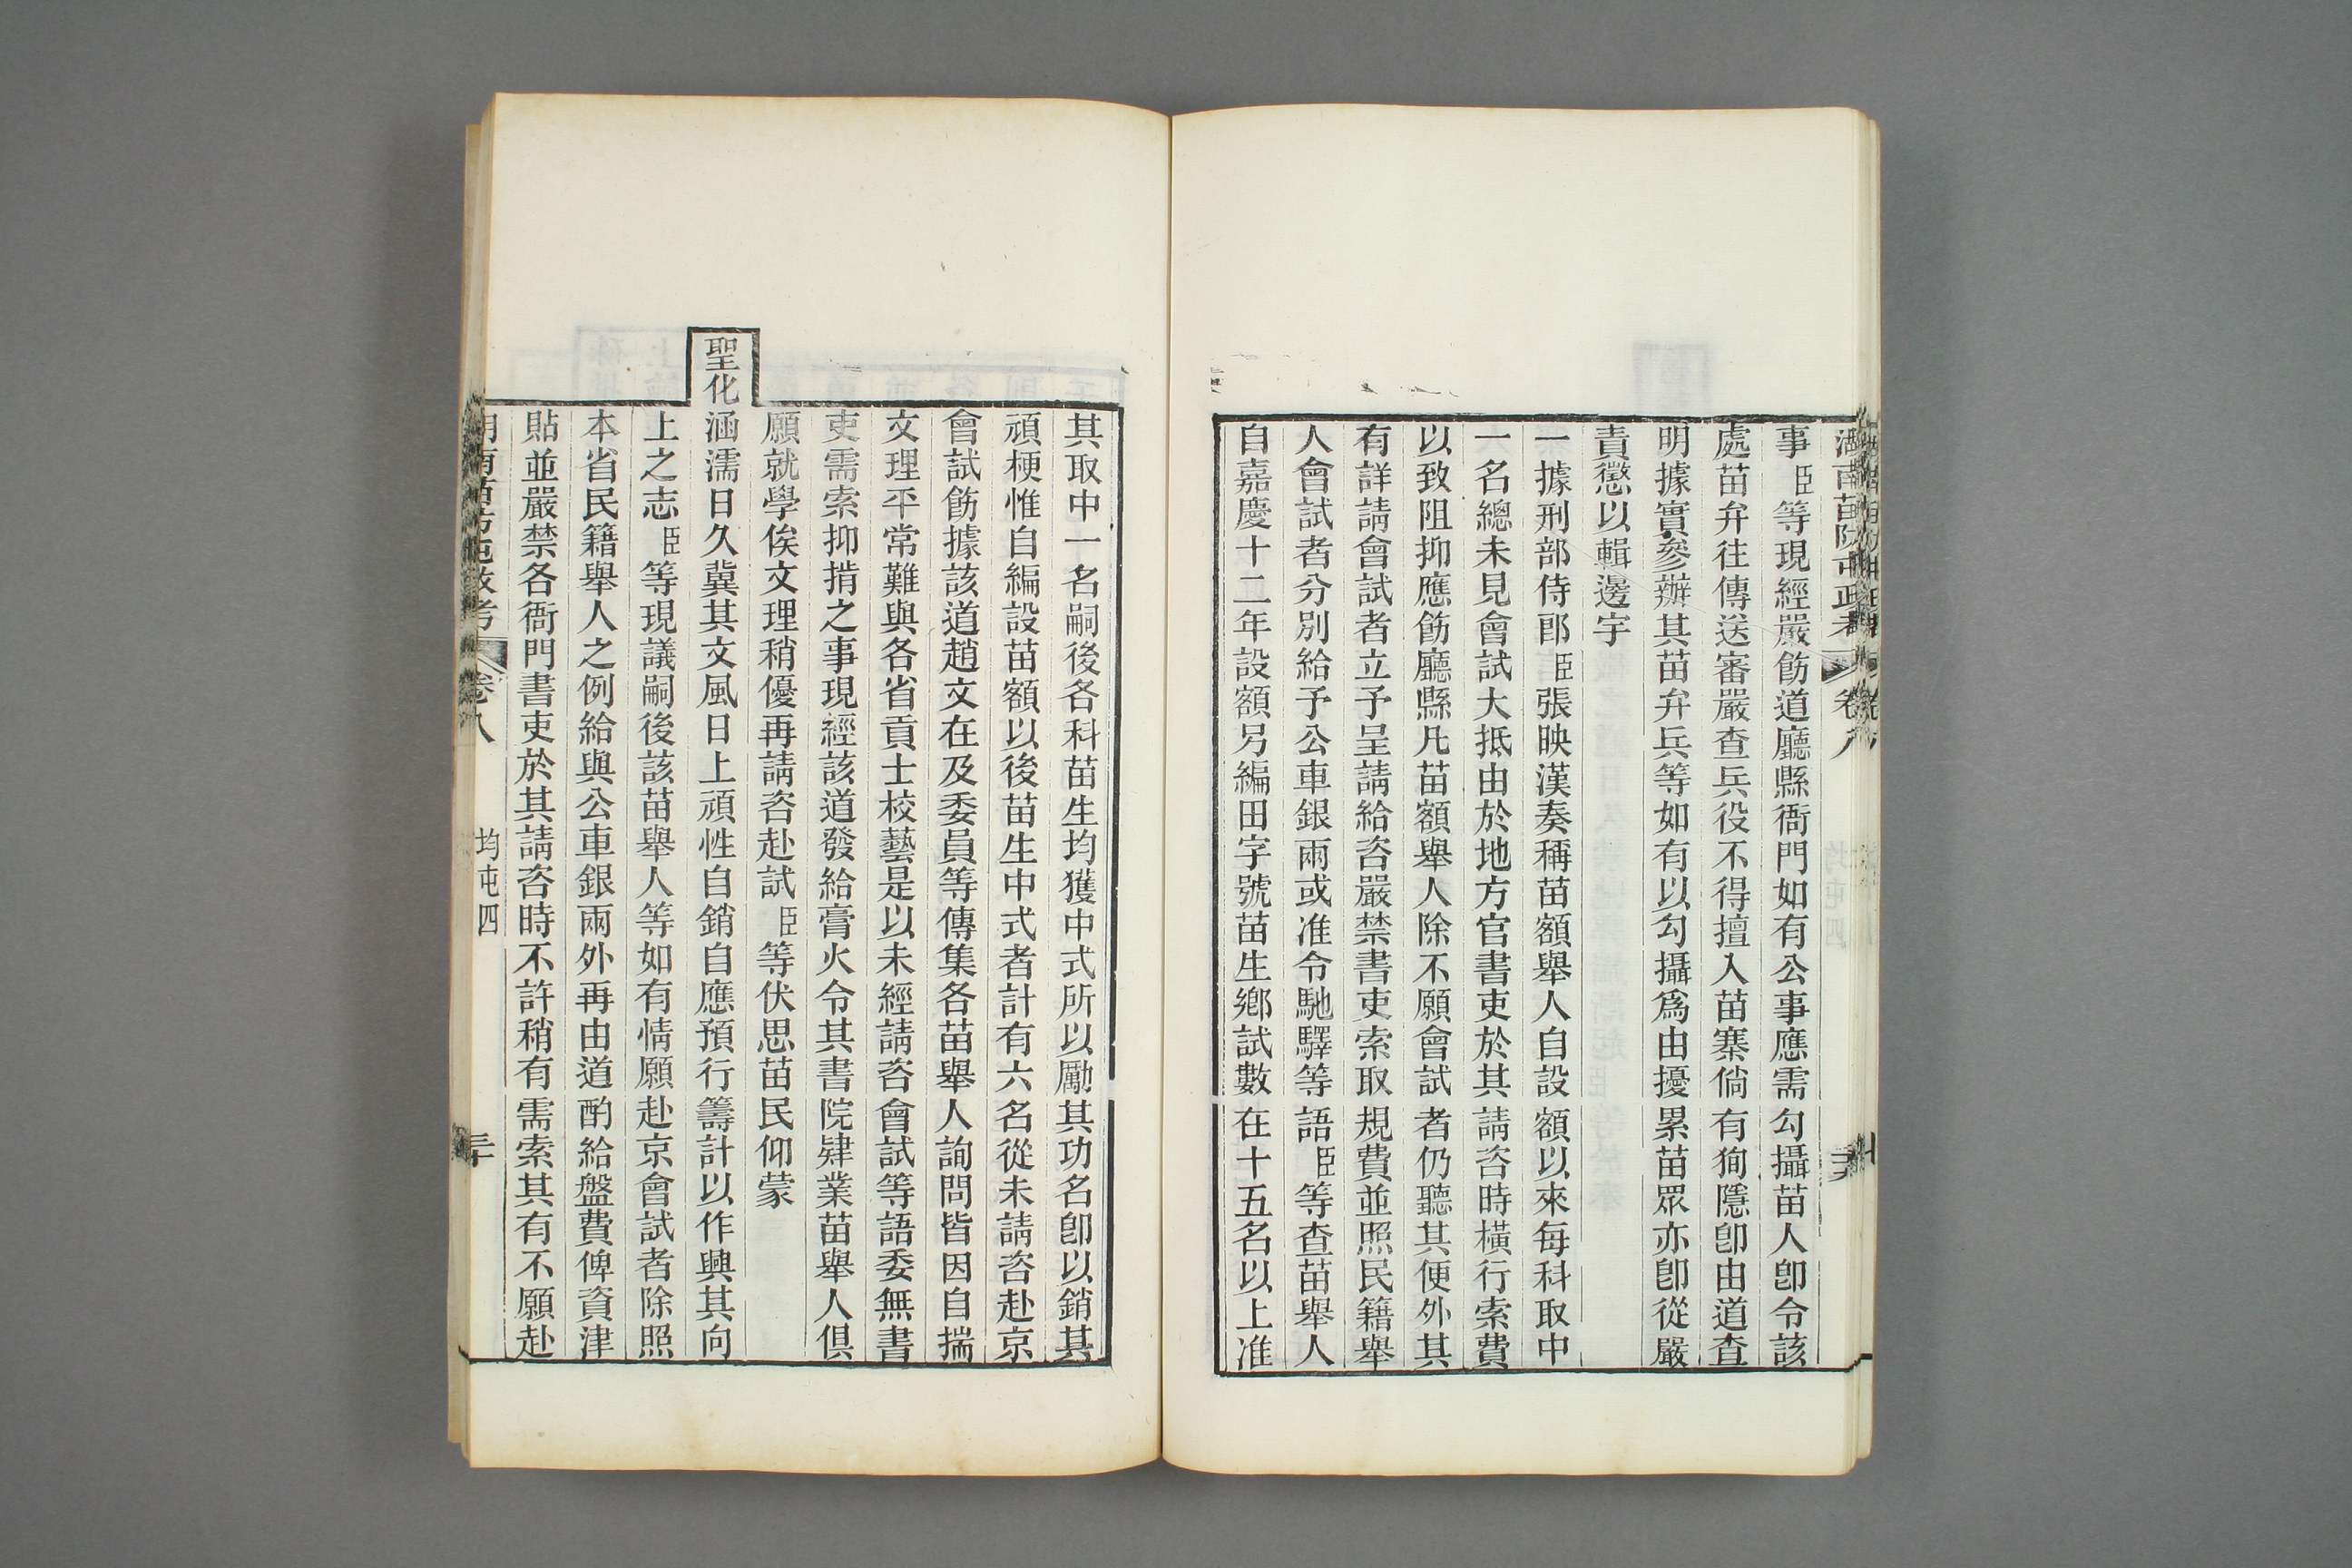 湖南苗防屯政考 卷八
事臣等現經嚴飭道廳縣衙門如有公事應需勾攝苗人卽令該
處苗弁往傳送審嚴查兵役不得擅入苗寨倘有狥隱卽由道查
明據實參辦其苗弁兵等如有以勾攝爲由擾累苗眾亦卽從嚴
責懲以輯邊宇
一據刑部侍郎臣張映漢奏稱苗額舉人自設額以來每科取中
一名總未見會試大抵由於地方官書吏於其請咨時橫行索費
以致阻抑應飭廳縣凡苗額舉人除不願會試者仍聽其便外其
有詳請會試者立予呈請給咨嚴禁書吏索取規費並照民籍舉
人會試者分別給予公車銀兩或准令馳驛等語臣等查苗舉人
自嘉慶十二年設額另編田字號苗生鄉試數在十五名以上准
其取中一名嗣後各科苗生均獲中式所以勵其功名卽以銷其
頑梗惟自編設苗額以後苗生中式者計有六名從未請咨赴京
會試飭據該道趙文在及委員等傳集各苗舉人詢問皆因自揣
文理平常難與各省貢士校藝是以未經請咨會試等語委無書
吏需索抑掯之事現經該道發給膏火令其書院肄業苗舉人俱
願就學俟文理稍優再請咨赴試臣等伏思苗民仰蒙
聖化涵濡日久冀其文風日上頑性自銷自應預行籌計以作興其向
上之志臣等現議嗣後該苗舉人等如有情願赴京會試者除照
本省民籍舉人之例給與公車銀兩外再由道酌給盤費俾資津
貼並嚴禁各衙門書吏於其請咨時不許稍有需索其有不願赴
湖南苗防屯政考 卷八 均屯四 三十